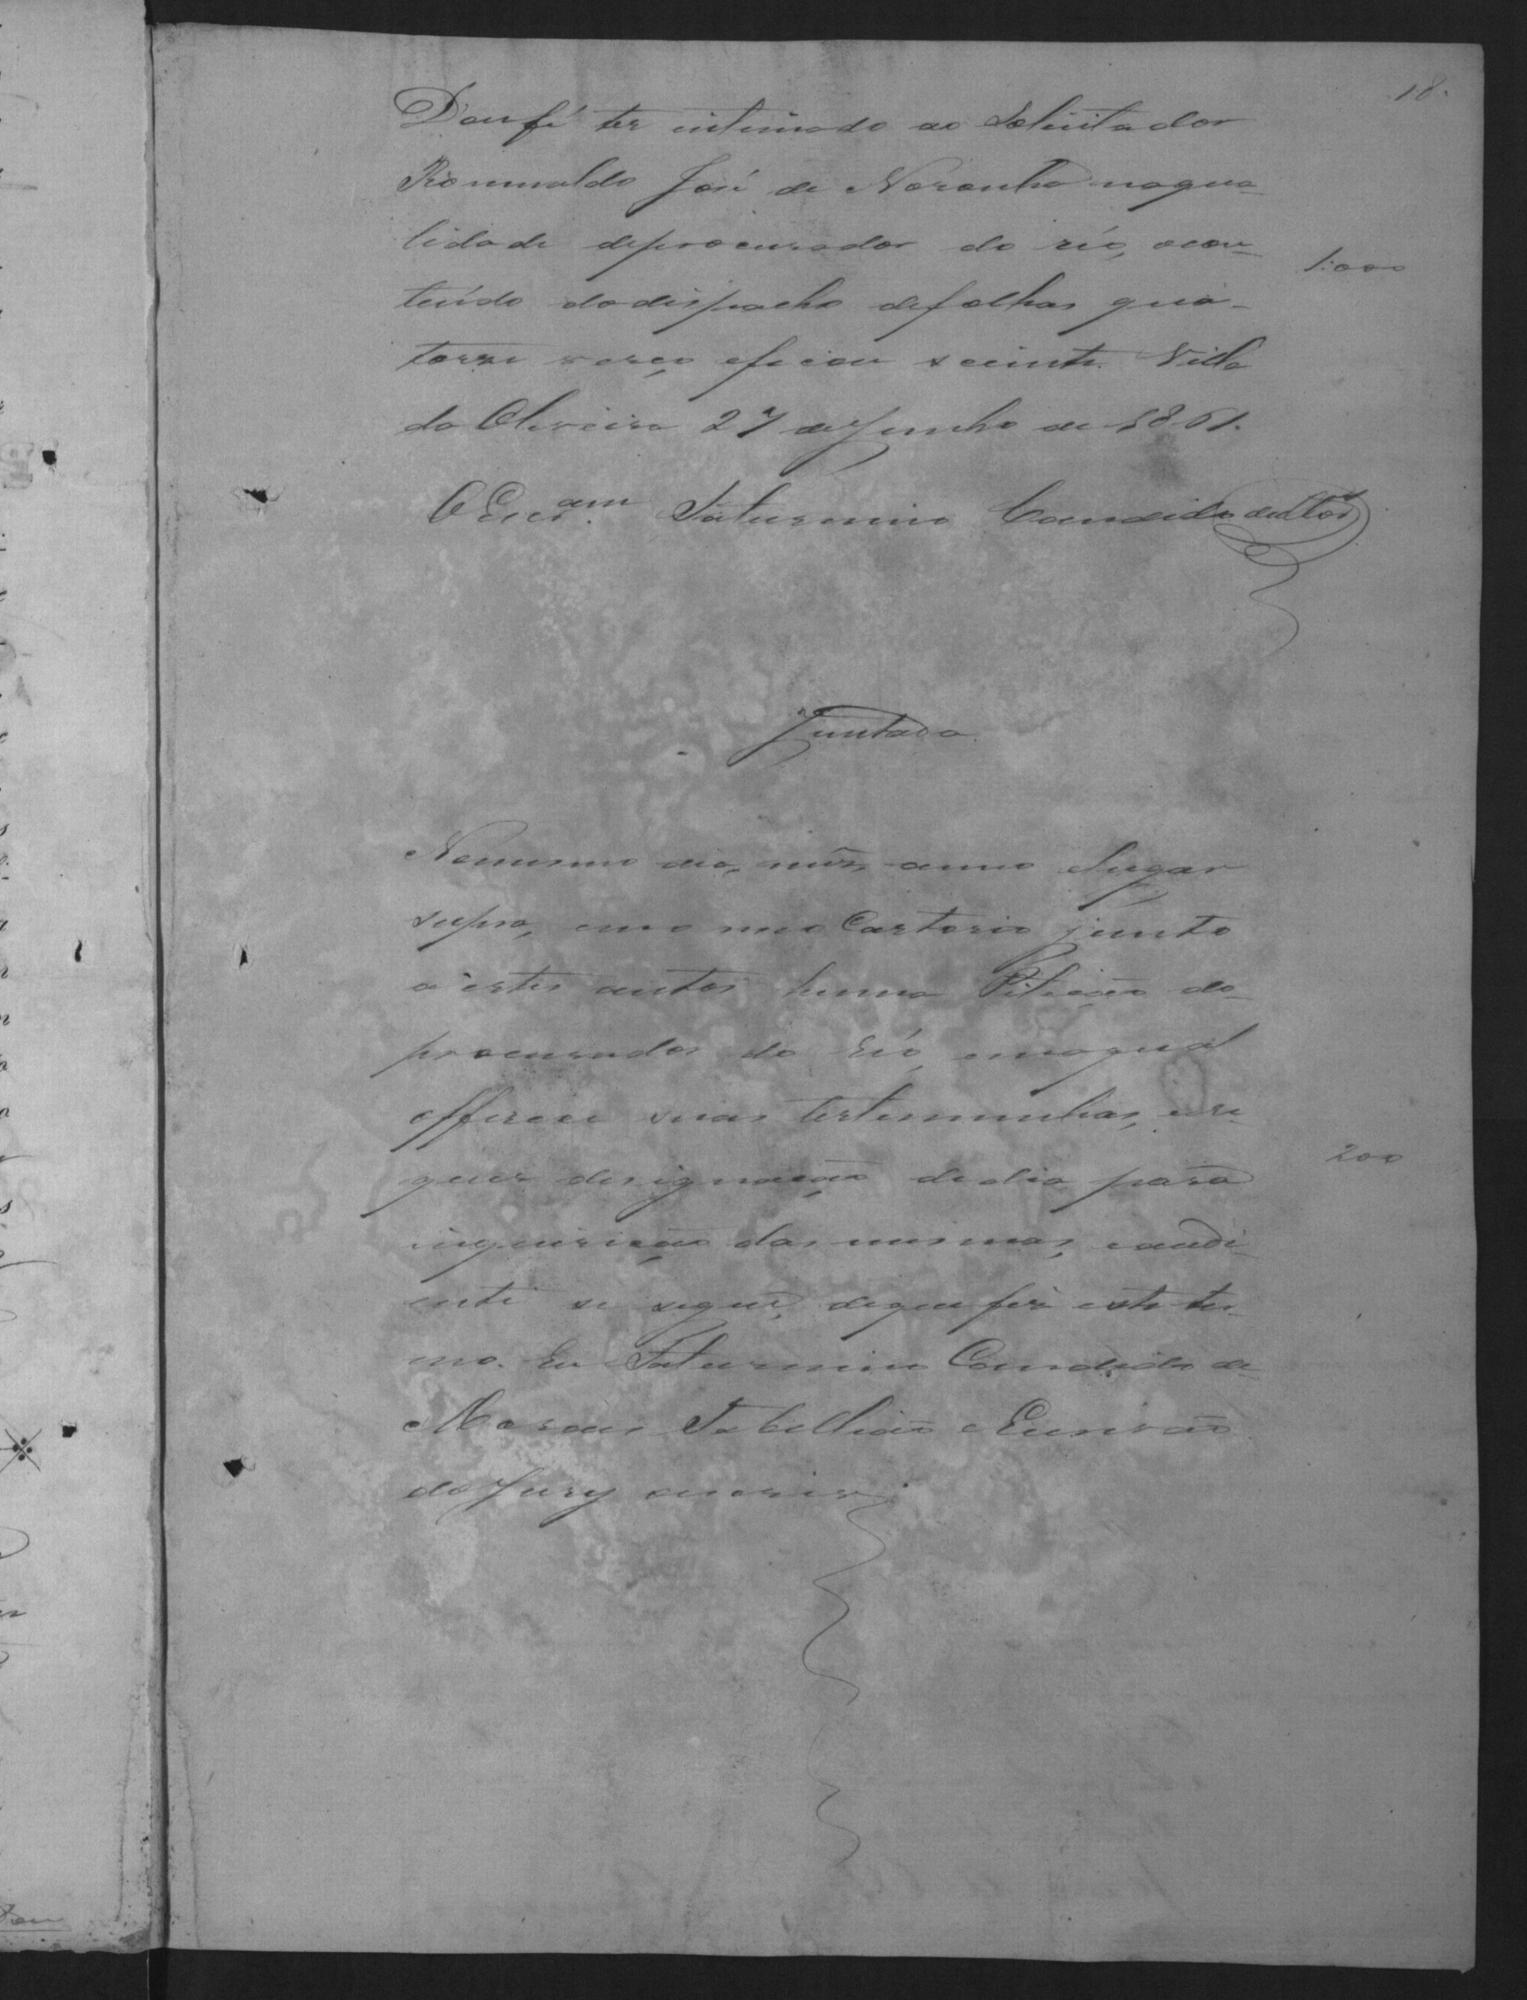 18.
Dou fé ter intimado ao Solicitador
Romualdo José de Noronha naqua-
lidade deprocurador do réo, ocon-
1:000
teúdo dodespacho defolhas qua-
torze verço eficou sciente. Villa
da Oliveira 27 deJunho de 1861.
O Escr.am Saturnino Candido
Juntada
Nomesmo dia, mês, anno elugar
supra, em o meu Cartorio junto
a estes autos huma Petição do
procurador do Réo, emaqual
offerece suas testemunhas, ere-
200
quer designação dedia para
inquirição das mesmas, eaudi-
ente se segue, dequefiz este ter-
mo. Eu Saturnino Candido de
Moraes Tabellião eEscrivão
do Jury oescrivi.